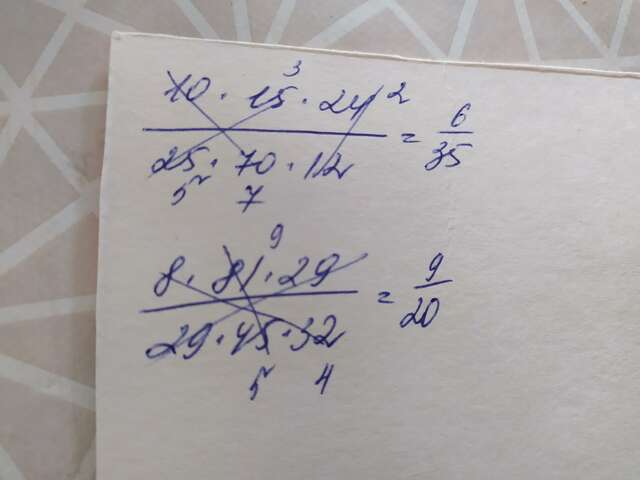 3
10 · 15 · 24 2
25 · 70 · 12 = 6/35
5 7
9
8 · 81 · 29
29 · 45 · 32 = 9/20
5 4